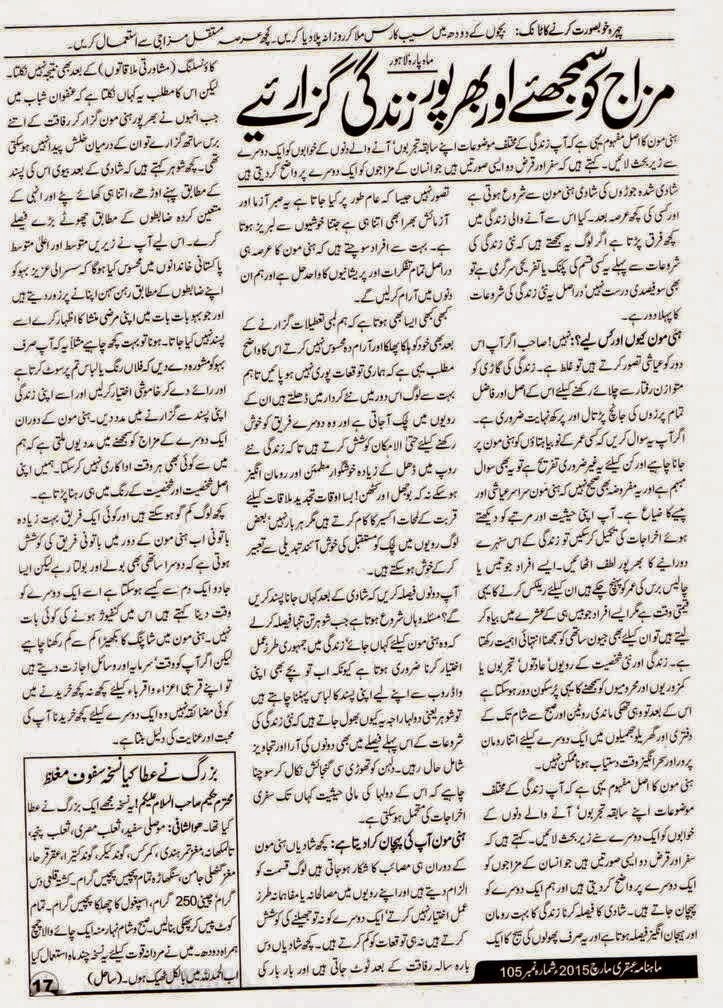 چہرہ خوبصورت کرنے کا ٹانک: بچوں کے دودھ میں سیب کا رس ملا کر روزانہ پلا دیا کریں۔ کچھ عرصہ مستقل مزاجی سے استعمال کریں۔
ماہ پارہ لاہور
مزاج کو سمجھئے اور بھرپور زندگی گزارئیے
ہنی مون کا اصل مفہوم یہی ہے کہ آپ زندگی کے مختلف موضوعات اپنے سابقہ تجربوں، آنے والے دنوں کے خوابوں کو ایک دوسرے
سے زیر بحث لائیں۔ کہتے ہیں کہ سفر اور قرض دو ایسی صورتیں ہیں جو انسان کے مزاجوں کو ایک دوسرے پر واضح کر دیتی ہیں
شادی شدہ جوڑوں کی شادی ہنی مون سے شروع ہوتی ہے
اور کسی کی کچھ عرصہ بعد۔ کیا اس سے آنے والی زندگی میں
کچھ فرق پڑتا ہے اگر لوگ یہ سمجھتے ہیں کہ نئی زندگی کی
شروعات سے پہلے یہ کسی قسم کی پکنک یا تفریحی سرگرمی ہے تو
بھی سو فیصدی درست نہیں، دراصل یہ نئی زندگی کی شروعات
کا پہلا دور ہے۔
ہنی مون کیوں اور کس لیے؟: نہیں! صاحب اگر آپ اس
دور کو عیاشی تصور کرتے ہیں تو غلط ہے۔ زندگی کی گاڑی کو
متوازن رفتار سے چلائے رکھنے کیلئے اس کے اصل اور فاضل
تمام پرزوں کی جانچ پڑتال اور پرکھ نہایت ضروری ہے۔
اگر آپ یہ سوال کریں کہ کسی عمر کے نوبیاہتاؤں کو ہنی مون پر
جانا چاہیے اور کن کیلئے یہ غیر ضروری تفریح ہے تو یہ بھی سوال
مبہم ہے اور یہ مفروضہ بھی صحیح نہیں کہ ہنی مون سراسر عیاشی اور
پیسے کا ضیاع ہے۔ آپ اپنی حیثیت اور مرتبے کو دیکھتے
ہوئے اخراجات کی تکمیل کر سکیں تو زندگی کے اس سنہرے
دورانیے کا بھرپور لطف اٹھائیں۔ ایسے افراد جو تیس یا
چالیس برس کی عمر کو پہنچ چکے ہیں ان کیلئے ریلکس کرنے کا یہی
قیمتی وقت ہے مگر ایسے افراد جو بیس ہی کے عشرے میں بیاہ کر
لیتے ہیں تو ان کیلئے بھی جیون ساتھی کو سمجھنا انتہائی اہمیت رکھتا
ہے۔ زندگی اور نئی شخصیت کے رویوں، عادتوں، تجربوں یا
کمزوریوں اور محرومیوں کو سمجھنے کا یہی پرسکون دور ہو سکتا ہے
اس کے بعد تو وہی تھکی ماندی روٹین اور صبح سے شام تک کے
دفتری اور گھریلو جھمیلوں میں ایک دوسرے کیلئے اتنا رومان
پرور اور سحر انگیز وقت دستیاب ہونا ممکن نہیں۔
ہنی مون کا اصل مفہوم یہی ہے کہ آپ زندگی کے مختلف
موضوعات اپنے سابقہ تجربوں، آنے والے دنوں کے
خوابوں کو ایک دوسرے سے زیر بحث لائیے۔ کہتے ہیں کہ
سفر اور قرض دو ایسی صورتیں ہیں جو انسان کے مزاجوں کو
ایک دوسرے پر واضح کر دیتی ہیں اور ہم ایک دوسرے کو
پہچان جاتے ہیں۔ شادی کا فیصلہ کرنا زندگی کا بہت رومان
اور ہیجان انگیز فیصلہ ہوتا ہے اور یہ صرف پھولوں کی سیج کا ایک
تصور نہیں جیسا کہ عام طور پر کیا جاتا ہے یہ صبر آزما اور
آزمائش بھرا بھی اتنا ہی ہے جتنا خوشیوں سے لبریز ہوتا
ہے۔ بہت سے افراد سوچتے ہیں کہ ہنی مون کا عرصہ ہی
دراصل تمام تفکرات اور پریشانیوں کا واحد حل ہے اور ہم ان
دنوں میں آرام کر لیں گے۔
کبھی کبھی ایسا بھی ہوتا ہے کہ ہم لمبی تعطیلات گزارنے کے
بعد بھی خود کو ہلکا پھلکا اور آرام دہ محسوس نہیں کرتے اس کا واضح
مطلب یہی ہے کہ ہماری توقعات پوری نہیں ہو پائیں تاہم
بہت سے لوگ اس دور میں نئے کردار میں ڈھلتے ہیں ان کے
رویوں میں لچک آجاتی ہے اور وہ دوسرے فریق کو خوش
رکھنے کیلئے حتیٰ الامکان کوشش کرتے ہیں تاکہ زندگی نئے
روپ میں ڈھل کے زیادہ خوشگوار، مطمئن اور رومان انگیز
ہو سکے نہ کہ بوجھل اور کٹھن! بسا اوقات تجدید ملاقات کیلئے
قربت کے لمحات اکسیر کا کام کرتے ہیں مگر ہر بار نہیں، بعض
لوگ رویوں میں لچک کو مستقبل کی خوش آئند تبدیلی سے تعبیر
کر کے خوش ہو سکتے ہیں۔
آپ دونوں فیصلہ کریں کہ شادی کے بعد کہاں جانا پسند کریں
گے؟ مسئلہ وہاں شروع ہوتا ہے جب شوہر تن تنہا فیصلہ کر لے
کہ وہ ہنی مون کیلئے کہاں جائے؟ زندگی میں جمہوری طرز عمل
اختیار کرنا ضروری ہوتا ہے کیونکہ اب تو بچے بھی اپنی
وارڈروب سے اپنے لیے اپنی پسند کا لباس پہننا چاہتے ہیں
تو شوہر یعنی دولہا راجہ یہ کیوں بھول جاتے ہیں کہ نئی زندگی کی
شروعات کے اس پہلے فیصلے میں بھی دونوں کی آرا اور تجاویز
شامل حال رہیں۔ دلہن کو تھوڑی سی گنجائش نکال کر سوچنا
چاہیے کہ اس کے دولہا کی مالی حیثیت کہاں تک سفری
اخراجات کی متحمل ہو سکتی ہے۔
ہنی مون آپ کی پہچان کرا دیتا ہے: کچھ شادیاں ہنی مون
کے دوران ہی مصائب کا شکار ہو جاتی ہیں لوگ قسمت کو
الزام دیتے ہیں اور اپنے رویوں میں مصالحانہ یا مفاہمانہ طرز
عمل اختیار نہیں کرتے، ایک دوسرے کو نہ تو سمجھنے کی کوشش
کرتے ہیں نہ ہی توقعات کو کم کرتے ہیں۔ کچھ شادیاں دس
بارہ سالہ رفاقت کے بعد ٹوٹ جاتی ہیں اور بار بار کی
کاؤنسلنگ (مشاورتی ملاقاتوں) کے بعد بھی نتیجہ نہیں نکلتا۔
لیکن اس کا مطلب یہ کہاں نکلتا ہے کہ عنفوان شباب میں
جب انہوں نے بھرپور ہنی مون گزار کر رفاقت کے اتنے
برس ساتھ گزارے تو ان کے درمیان خلش پیدا نہیں ہو سکتی
تھی۔ کچھ شوہر کہتے ہیں کہ شادی کے بعد بیوی اس کی پسند
کے مطابق پہنے اوڑھے، اتنا ہی کھائے پئے اور انہی کے
متعین کردہ ضابطوں کے مطابق چھوٹے بڑے فیصلے
کرے۔ اس لیے آپ نے زیریں متوسط اور اعلیٰ متوسط
پاکستانی خاندانوں میں محسوس کیا ہوگا کہ سسرالی عزیز بہو کو
اپنے ضابطوں کے مطابق رہن سہن اپنانے پر زور دیتے ہیں
اور جو بہو بات بات میں اپنی مرضی، منشا کا اظہار کرے اسے
پسند نہیں کیا جاتا۔ ہونا تو بہت کچھ چاہیے مثلاً یہ کہ آپ صرف
بہو کو مشورہ دے دیں کہ فلاں رنگ یا لباس تم پر سوٹ کرتا ہے
اور رائے دے کر خاموشی اختیار کر لیں اور اسے اپنی زندگی
اپنی پسند سے گزارنے میں مدد دیں۔ ہنی مون کے دوران
ایک دوسرے کے مزاج کو سمجھنے میں مدد یوں ملتی ہے کہ ہم
میں سے کوئی بھی ہر وقت اداکاری نہیں کر سکتا۔ ہمیں اپنی
اصل شخصیت اور شخصیت کے رنگ میں ہی رہنا پڑتا ہے۔
کچھ لوگ کم گو ہو سکتے ہیں اور کوئی ایک فریق بہت زیادہ
باتونی اب ہنی مون کے دور میں باتونی فریق کی کوشش
ہوتی ہے کہ دوسرا ساتھی بھی بولے اور بولتا رہے لیکن ایسا
جادو ایک دم سے کیسے ہو سکتا ہے اسے ایک دوسرے کو
وقت دینا کہتے ہیں اس میں کنفیوژ ہونے کی کوئی بات
نہیں۔ ہنی مون میں شاپنگ کا بکھیڑا کم سے کم رکھنا چاہیے
لیکن اگر آپ کو وقت، سرمایہ اور وسائل اجازت دیتے ہیں
تو اپنے قریبی اعزاء واقرباء کیلئے کچھ نہ کچھ خریدنے میں
کوئی مضائقہ نہیں وہ ایک دوسرے کیلئے کچھ خریدنا آپ کی
محبت اور عنایت کی دلیل بنتا ہے۔
بزرگ نے عطا کیا نسخہ سفوف مغلظ
محترم حکیم صاحب السلام علیکم! یہ نسخہ مجھے ایک بزرگ نے عطا
کیا تھا۔ ھوالشافی: موصلی سفید، ثعلب مصری، ثعلب پنجہ،
تالمکھانہ، مغز تمر ہندی، کمرکس، گوند کیکر، گوند کتیرا، عقرقرحا،
مغز گٹھلی جامن، سنگھاڑہ تمام پچیس پچیس گرام۔ کشتہ قلعی دس
گرام چینی 250 گرام، اسپغول کا چھلکا پچیس گرام۔ تمام
کوٹ پیس کر پھکی بنالیں۔ صبح و شام نہار منہ ایک چائے والا چمچ
ہمراہ دودھ۔ میں نے مردانہ قوت کیلئے یہ نسخہ چند ماہ استعمال کیا
اب الحمدللہ میں بالکل ٹھیک ہوں۔ (ساحل)
ماہنامہ عبقری مارچ 2015ء شمارہ نمبر 105
17